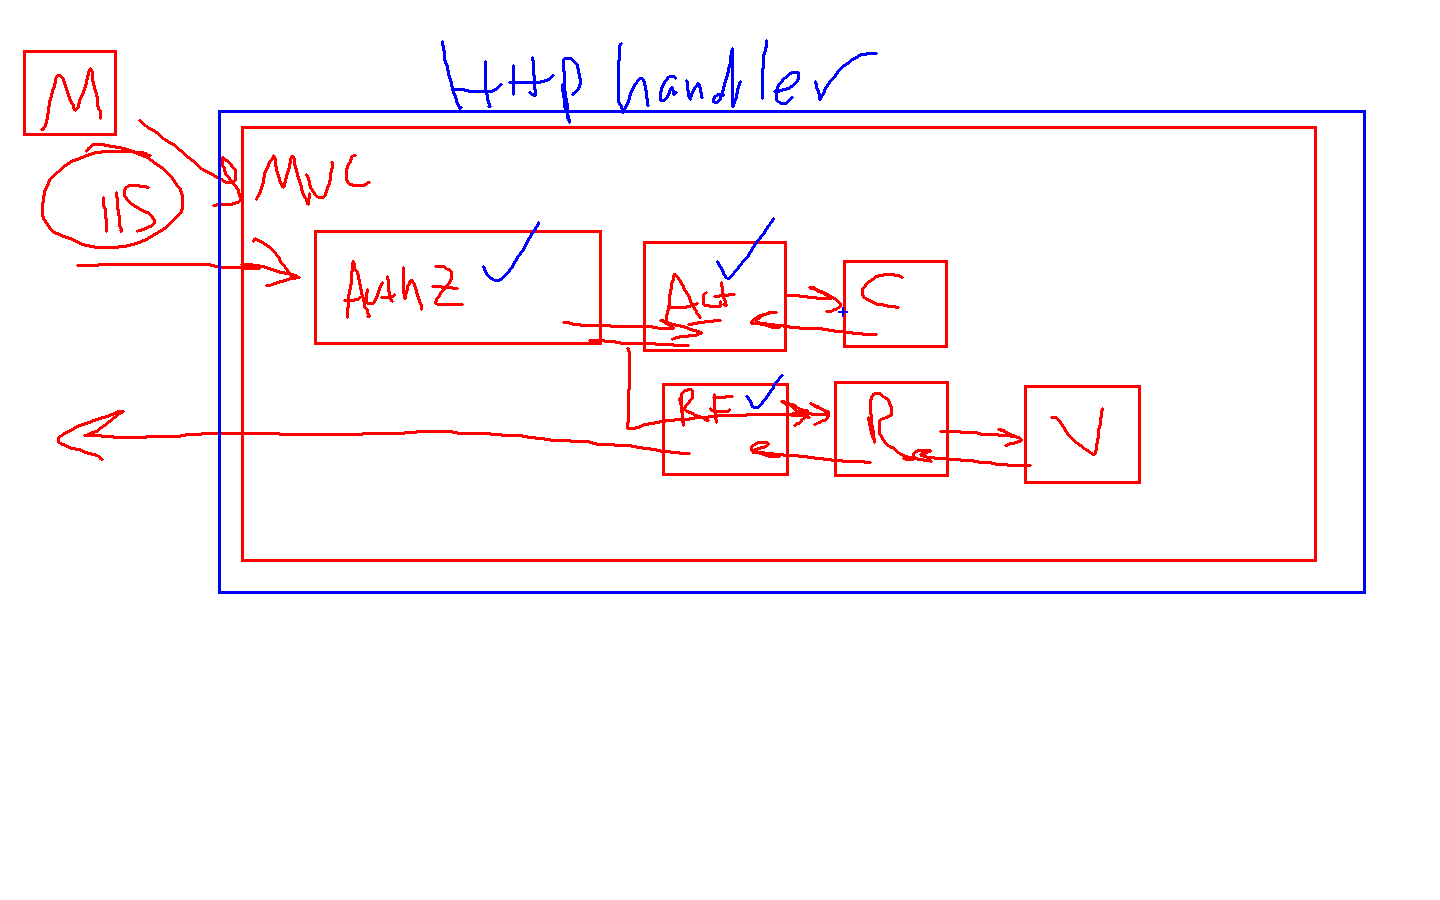 Http handler
M
IIS
MVC
AuthZ
Act
C
RF
R
V